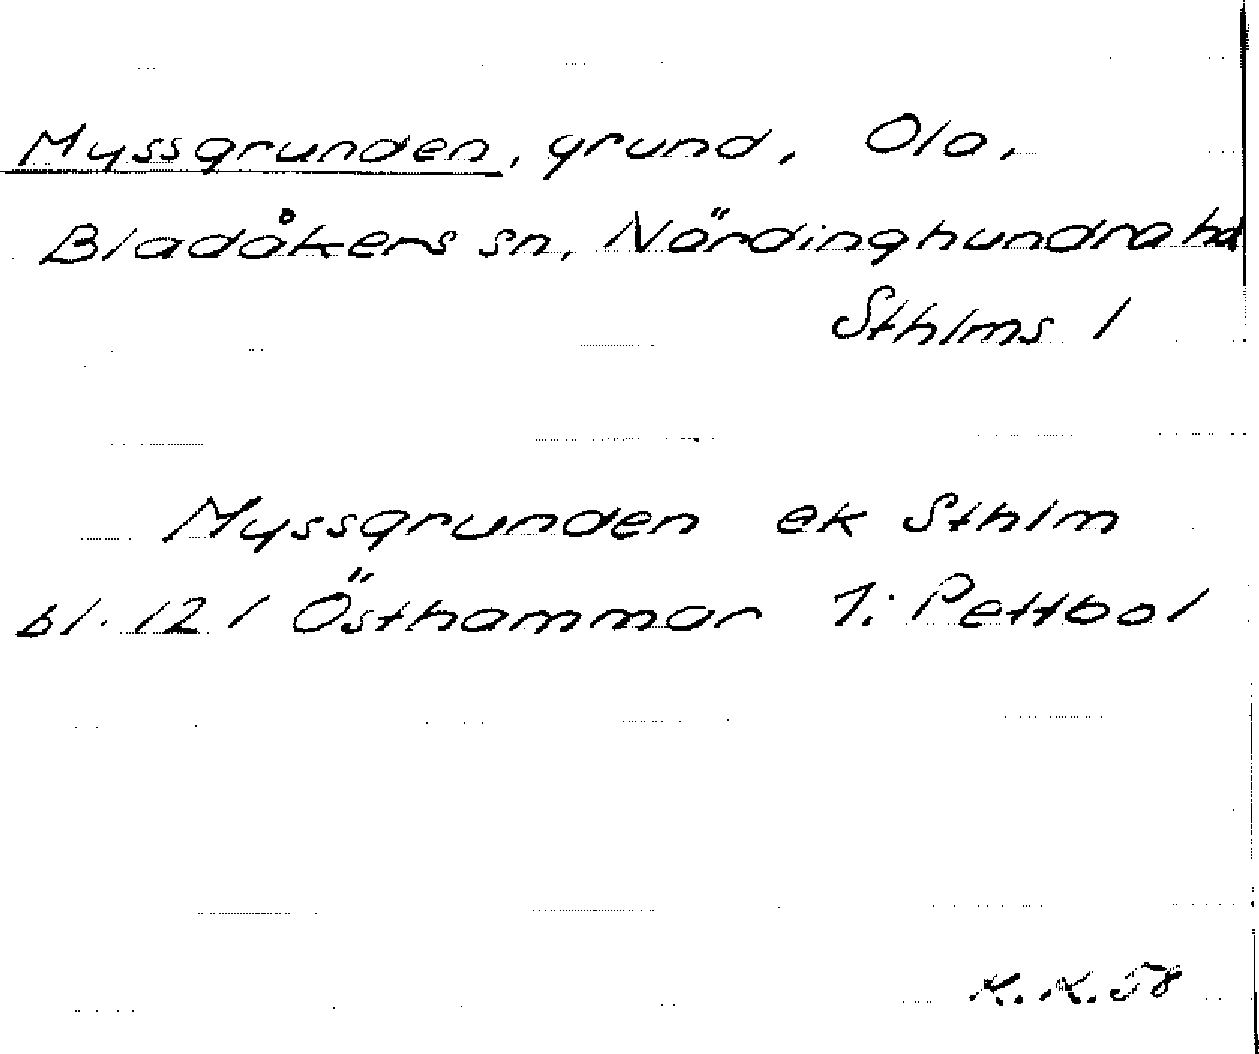 Myssgrunden, grund, Ola,
Bladåkers sn, Närdinghundra hd
Sthlms l
Myssgrunden ek Sthlm
bl. 121 Östhammar 1: Pettbol
K. K. 58